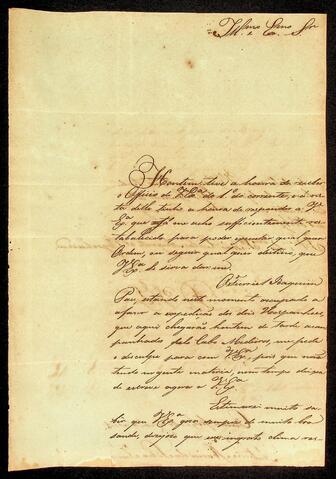 Illmo e Exmo Snr
Hontem tive a honra de receber
o Officio de V. Exa do 1o do corrente, e á vis
ta delle tenho a honra de responder a V.
Exa que já me acho sufficientemente res
tabelecido para poder executar qualquer
Ordem, ou seguir qualquer destino, que
V. Exa se sirva dar-me.
O Coronel Joaquim
Pau, estando neste momento occupado a
a expedição dos dous Hespanhoes,
que aqui chegarão hontem de tarde acom
panhados pelo Cabo Medeiros, me pede
o desculpe para com V. Exa, pois que não
tendo urgente materia, nem tempo deixa
de escrever agora a V. Exa
Estimarei muito sa
ber que V. Exa goza sempre de muito boa
saude, desejos que me